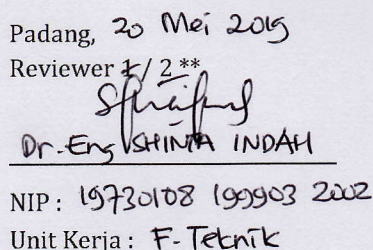 Padang, 20 Mei 2019
Reviewer 1 / 2 **
Dr.Eng SHINTA INDAH
NIP : 19730108 199903 2002
Unit Kerja : F. Teknik